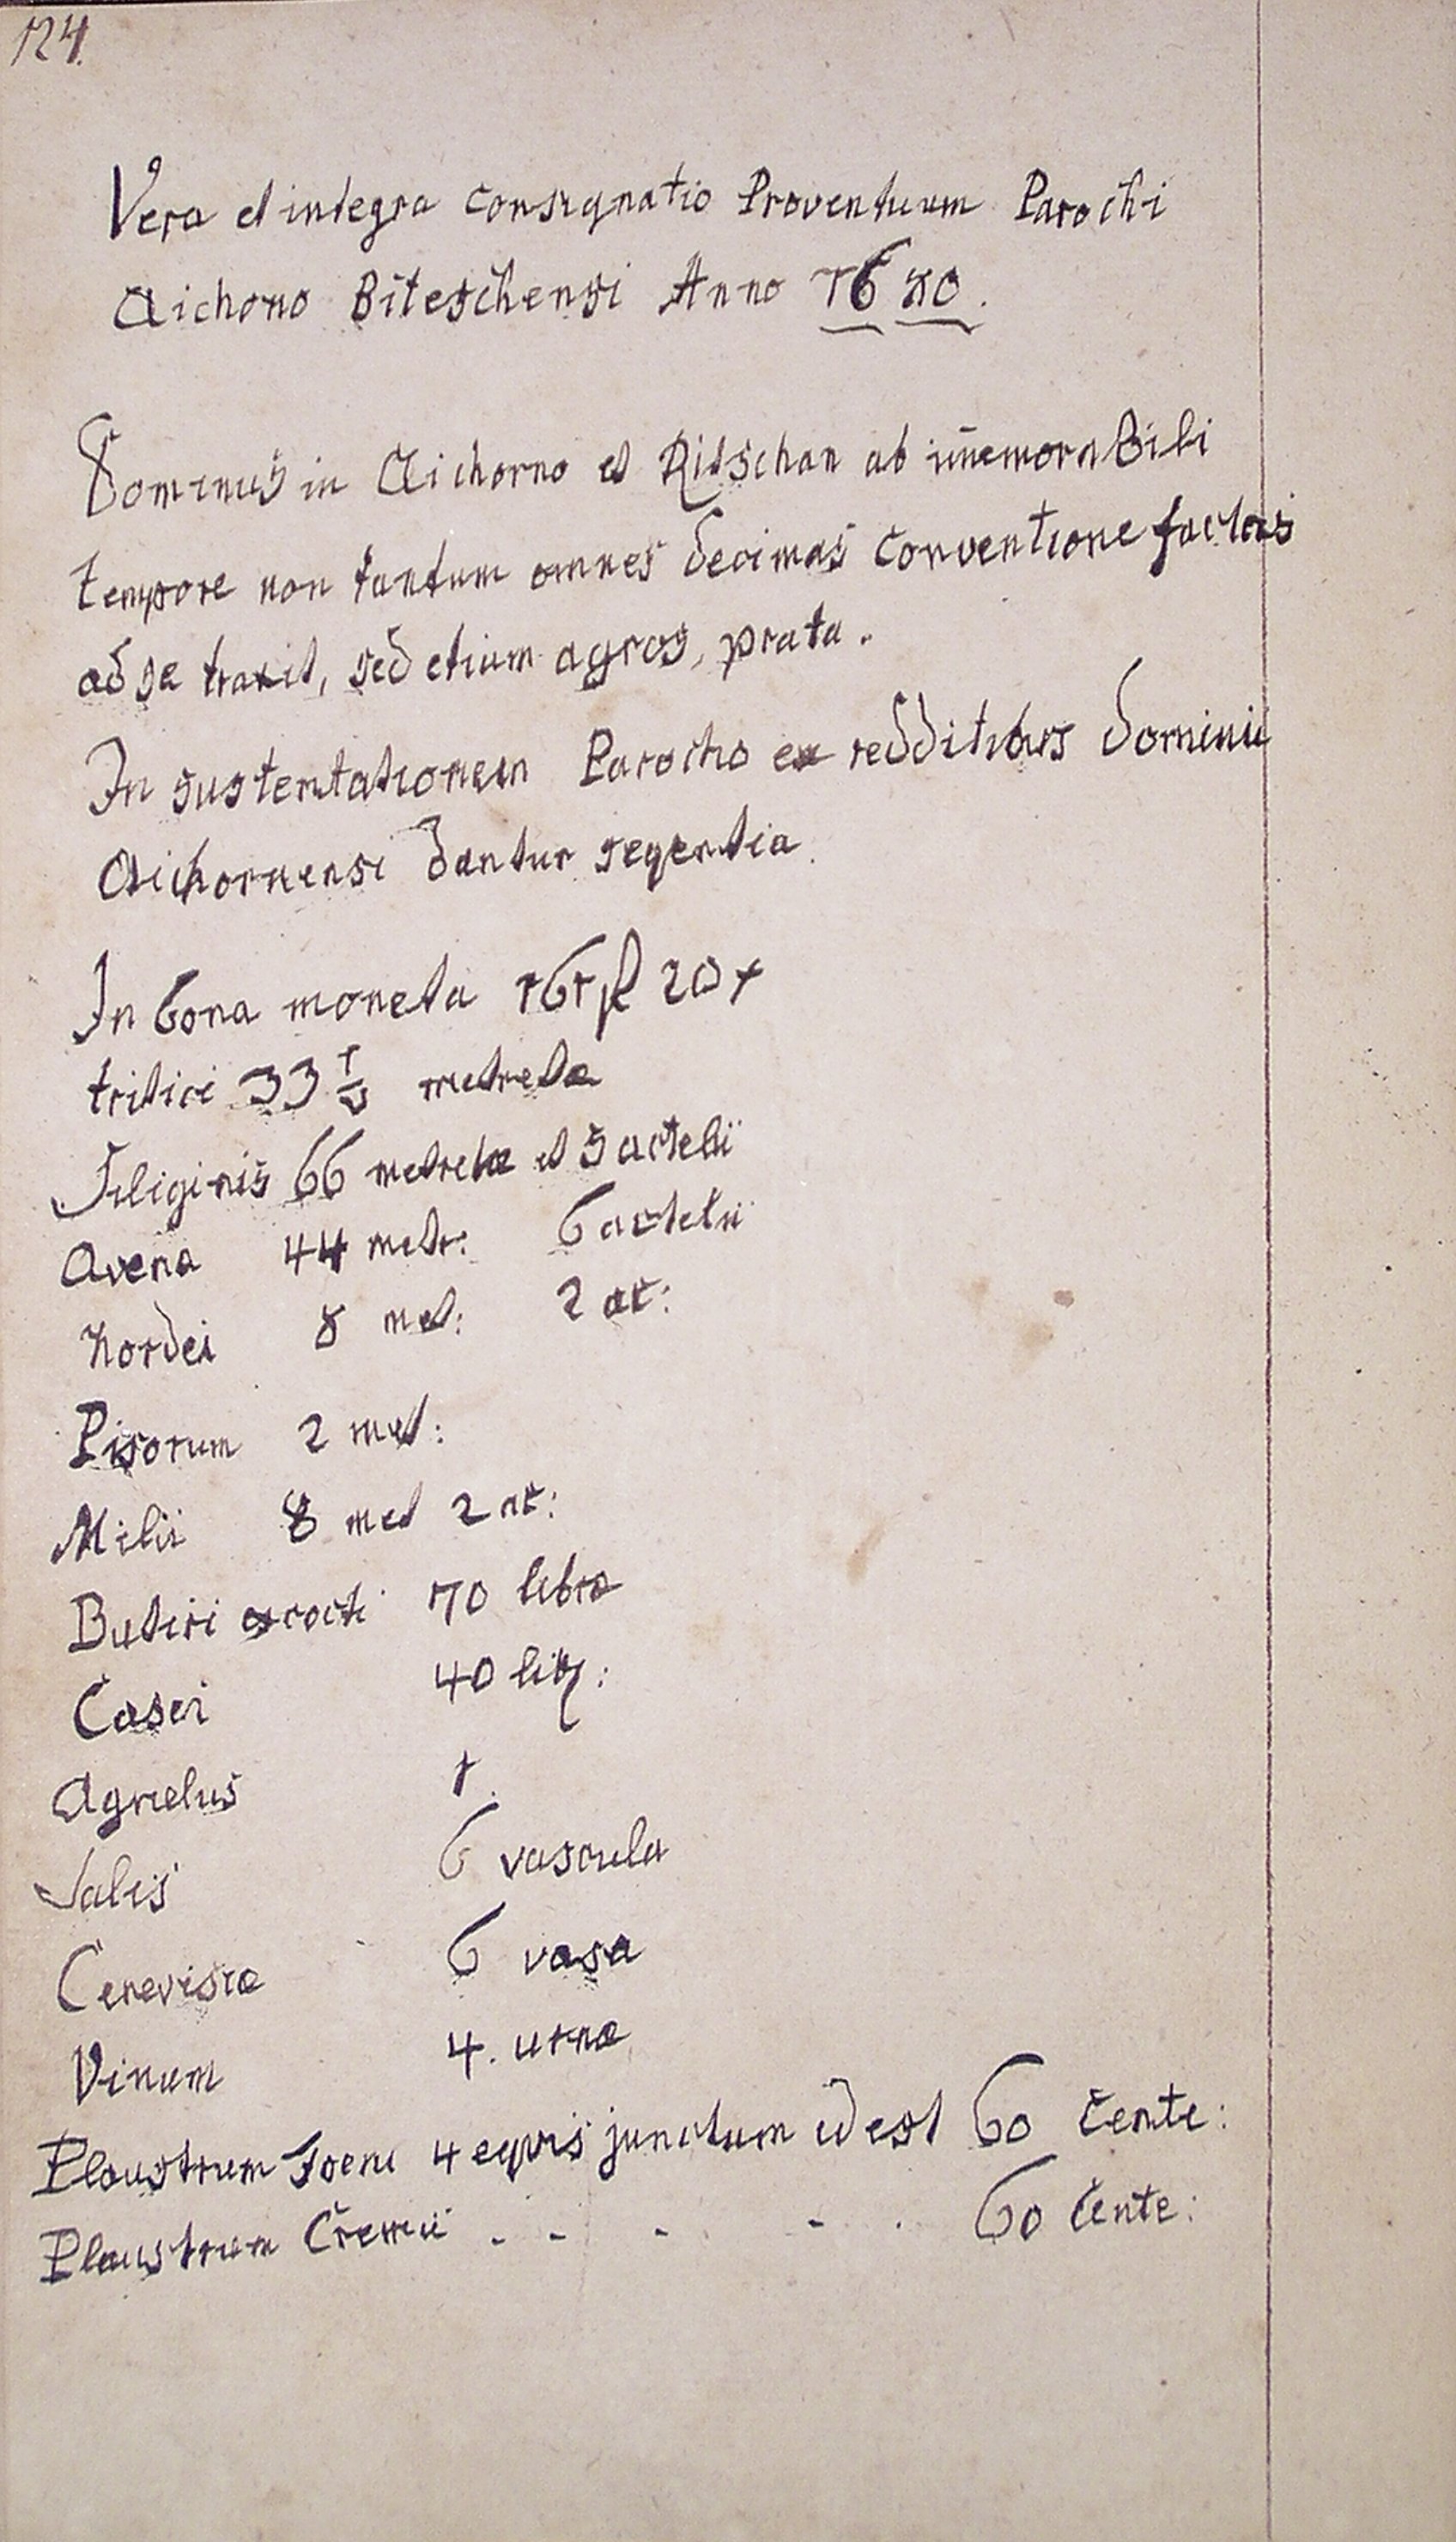 124.
Vera et integra consignatio Proventuum Parochi
Aichono Biteschensi Anno 1680.
Dominus in Aichorno et Ritschan ab im̄emorabili
tempore non tantum omnes decimas conventione factas
ad se traxit, sed etium agros, prata.
In sustentationem Parocho ex redditibus Dominii
Aichornensi dantur seqentia.
In bona moneta 161 fl 20 x
tritici 33 1/3 metreta
Siliginis 66 metretæ et 5 acteli
Avena 44 metr: 6 actelii
hordei 8 met: 2 ac:
Pisorum 2 met:
Milii 8 met 2 ac:
Butiri excocti 70 libræ
Casei 40 lib:
Agnelus 1.
Salis 6 vascula
Cerevisiæ 6 vasa
Vinum 4. urnæ
Plaustrum foeni 4 equis junctum id est 60 Cente:
Plaustrum Cremii . - - - . 60 Cente: